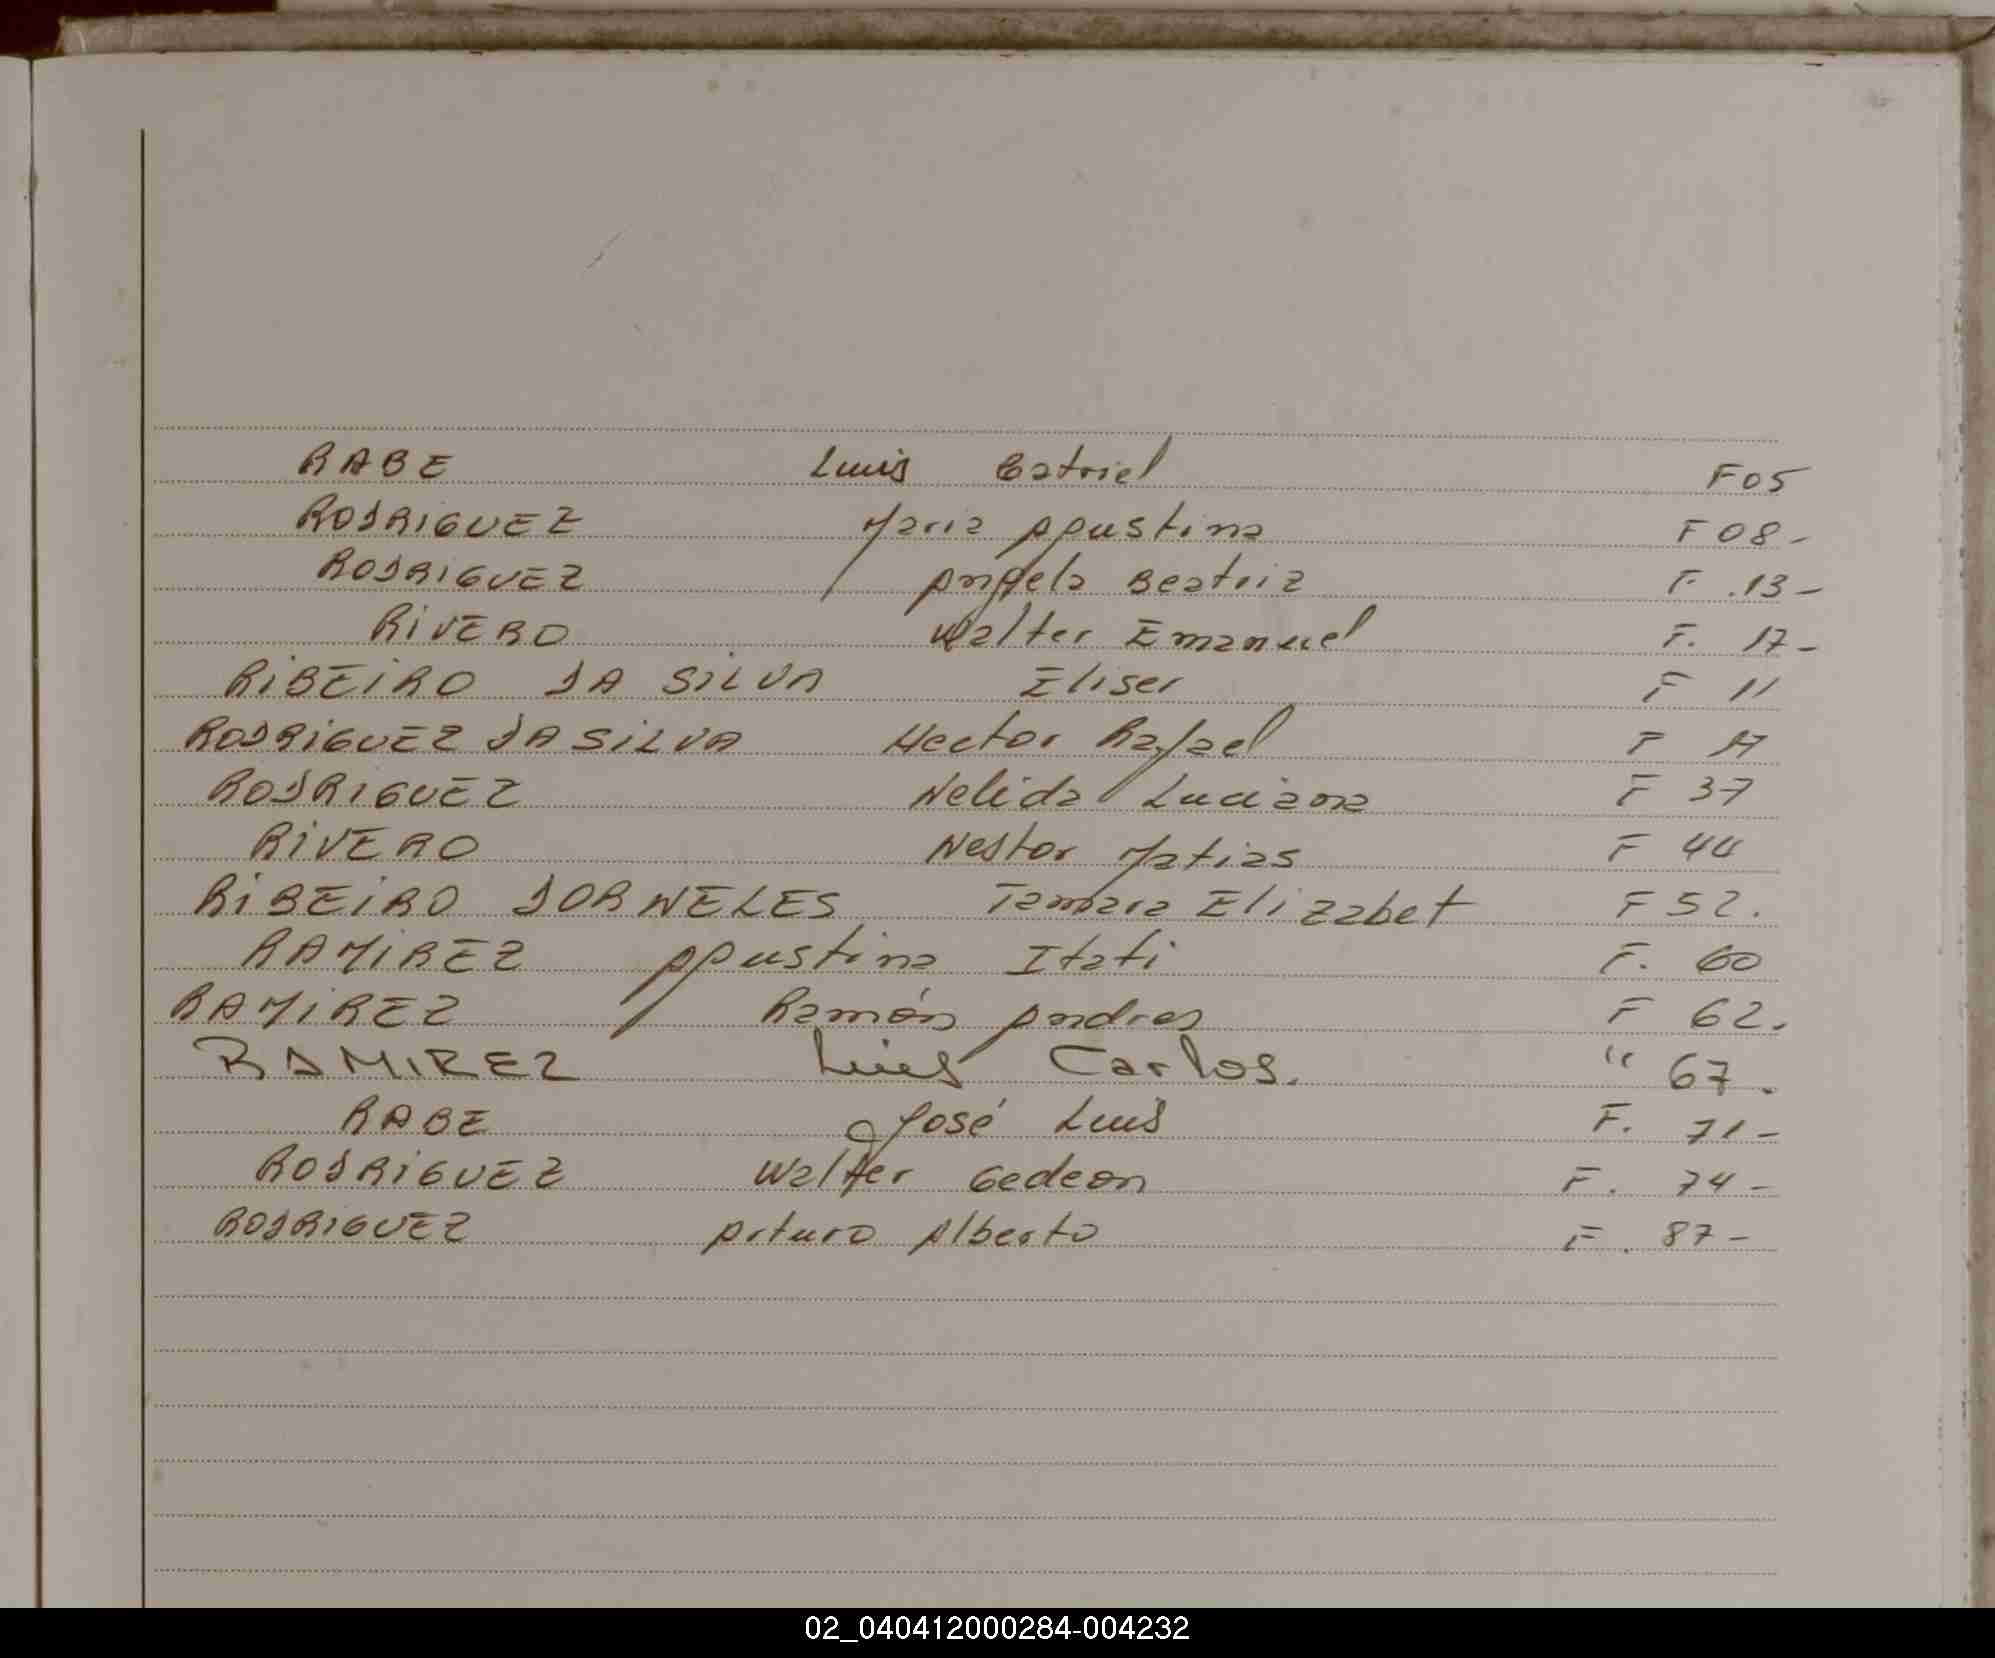 RABE Luis Catriel F 05
RODRIGUEZ Maria Agustina F 08-
RODRIGUEZ Angela Beatriz F. 13-
RIVERO Walter Emanuel F. 17-
RIBEIRO DA SILVA Eliser F 11
RODRIGUEZ DA SILVA Hector Rafael F
RODRIGUEZ Nelida Luciana F 37
RIVERO Nestor Matias F 44
RIBEIRO DORNELES Tamara Elizabet F 52.
RAMIREZ Agustina Itati F. 60
RAMIREZ Ramón Andres F 62.
RAMIREZ Luis Carlos. " 67.
RABE José Luis F. 71-
RODRIGUEZ Walter Gedeon F. 74-
RODRIGUEZ Arturo Alberto F. 87-
02_040412000284-004232